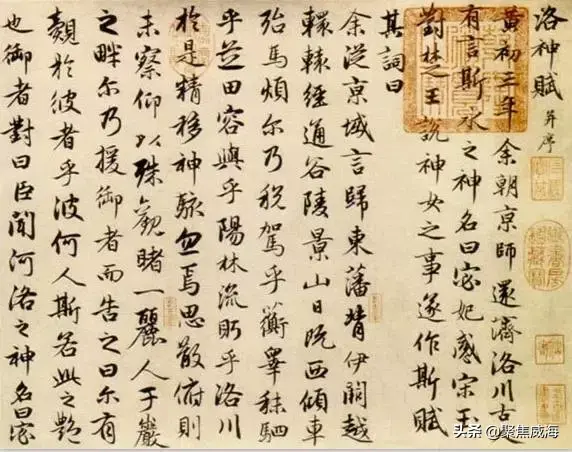 洛神賦 并序
黃初三年余朝京師還濟洛川古人
有言斯水之神名曰宓妃感宋玉
對楚王說神女之事遂作斯賦
其詞曰
余從京域言歸東藩背伊闕越
轘轅經通谷陵景山日既西傾車
殆馬煩尔乃稅駕乎蘅皋秣駟
乎芝田容與乎陽林流眄乎洛川
於是精移神駭忽焉思散俯則
未察仰以殊觀睹一麗人于巖
之畔尔乃援御者而告之曰尔有
覿於彼者乎彼何人斯若此之艷
也御者對曰臣聞河洛之神名曰宓
头条 @聚焦威海